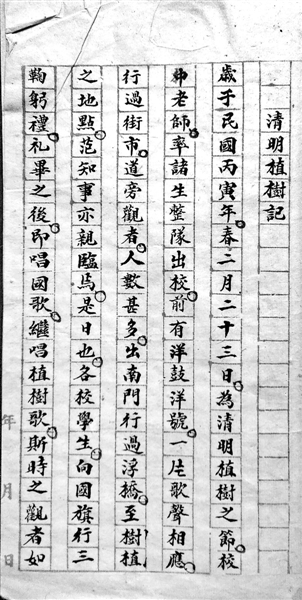 清明植樹記
歲于民國丙寅年春二月二十三日為清明植樹之節校
弟老師率諸生整隊出校前有洋鼓洋號一片歌聲相應
行過街市道旁觀者人數甚多出南門行過浮橋至樹植
之地點范知事亦親臨焉是日也各校學生向國旗行三
鞠躬禮礼畢之後即唱國歌繼唱植樹歌斯時之觀者如
年月日